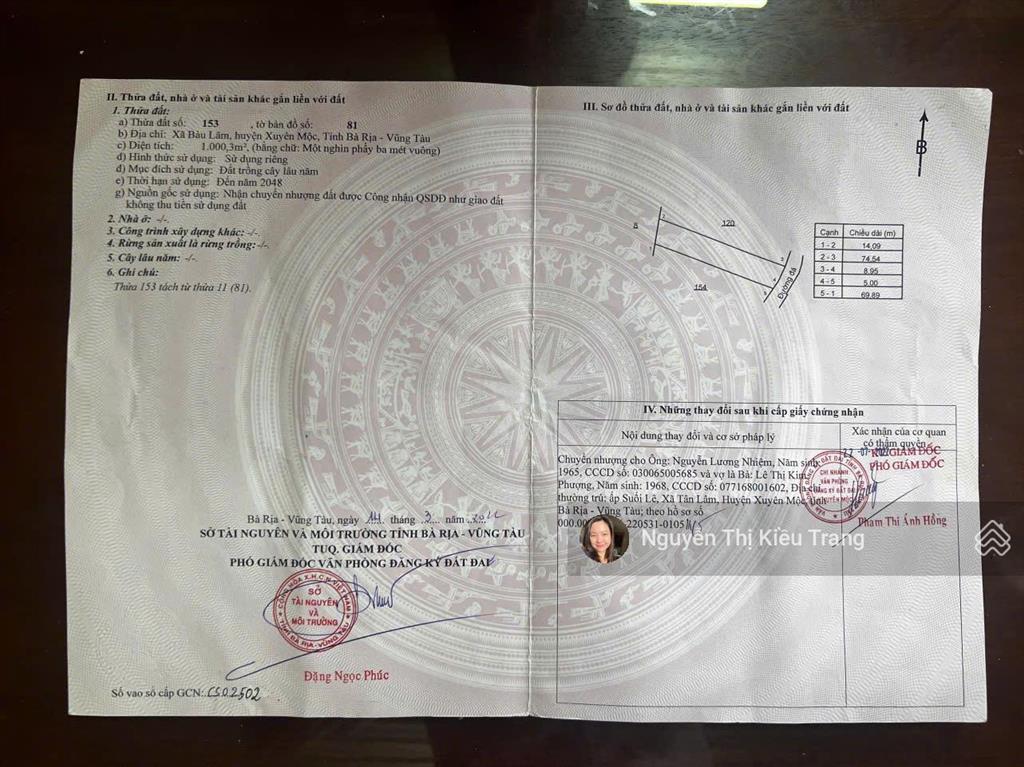 II. Thửa đất, nhà ở và tài sản khác gắn liền với đất
1. Thửa đất:
a) Thửa đất số: 153 , tờ bản đồ số: 81
b) Địa chỉ: Xã Bàu Lâm, huyện Xuyên Mộc, Tỉnh Bà Rịa - Vũng Tàu
c) Diện tích: 1.000,3m², (bằng chữ: Một nghìn phẩy ba mét vuông)
d) Hình thức sử dụng: Sử dụng riêng
đ) Mục đích sử dụng: Đất trồng cây lâu năm
e) Thời hạn sử dụng: Đến năm 2048
g) Nguồn gốc sử dụng: Nhận chuyển nhượng đất được Công nhận QSDĐ như giao đất
không thu tiền sử dụng đất
2. Nhà ở: -/-.
3. Công trình xây dựng khác: -/-.
4. Rừng sản xuất là rừng trồng: -/-.
5. Cây lâu năm: -/-.
6. Ghi chú:
Thửa 153 tách từ thửa 11 (81).
Bà Rịa - Vũng Tàu, ngày 14 tháng 3 năm 2022
SỞ TÀI NGUYÊN VÀ MÔI TRƯỜNG TỈNH BÀ RỊA - VŨNG TÀU
TUQ. GIÁM ĐỐC
PHÓ GIÁM ĐỐC VĂN PHÒNG ĐĂNG KÝ ĐẤT ĐAI
CỘNG HÒA X.H.C.N VIỆT NAM
SỞ
TÀI NGUYÊN
VÀ
MÔI TRƯỜNG
TỈNH BÀ RỊA - VŨNG TÀU
Đặng Ngọc Phúc
Số vào sổ cấp GCN: CS02502
III. Sơ đồ thửa đất, nhà ở và tài sản khác gắn liền với đất
B
8
120
154
1
2
3
4
5
Đường đá
Cạnh Chiều dài (m)
1 - 2 14.09
2 - 3 74.54
3 - 4 8.95
4 - 5 5.00
5 - 1 69.89
IV. Những thay đổi sau khi cấp giấy chứng nhận
Nội dung thay đổi và cơ sở pháp lý
Xác nhận của cơ quan
có thẩm quyền
Chuyển nhượng cho Ông: Nguyễn Lương Nhiệm, Năm sinh:
1965, CCCD số: 030065005685 và vợ là Bà: Lê Thị Kim
Phượng, Năm sinh: 1968, CCCD số: 077168001602, Địa chỉ
thường trú: ấp Suối Lê, Xã Tân Lâm, Huyện Xuyên Mộc, Tỉnh
Bà Rịa - Vũng Tàu; theo hồ sơ số
000.00 220531-0105
KT. GIÁM ĐỐC
PHÓ GIÁM ĐỐC
CHI NHÁNH
VĂN PHÒNG
ĐĂNG KÝ ĐẤT ĐAI
HUYỆN XUYÊN MỘC
Phạm Thị Ánh Hồng
Nguyễn Thị Kiều Trang